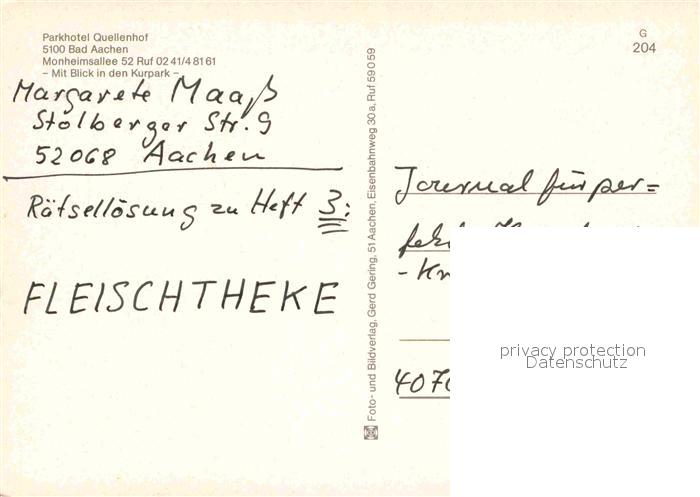 Parkhotel Quellenhof
5100 Bad Aachen
Monheimsallee 52 Ruf 02 41/4 81 61
– Mit Blick in den Kurpark –
Margarete Maaß
Stolberger Str. 9
52068 Aachen
Rätsellösung zu Heft 3:
FLEISCHTHEKE
Foto- und Bildverlag, Gerd Gering, 51 Aachen, Eisenbahnweg 30a, Ruf 59059
G
204
Journal für per=
privacy protection
Datenschutz